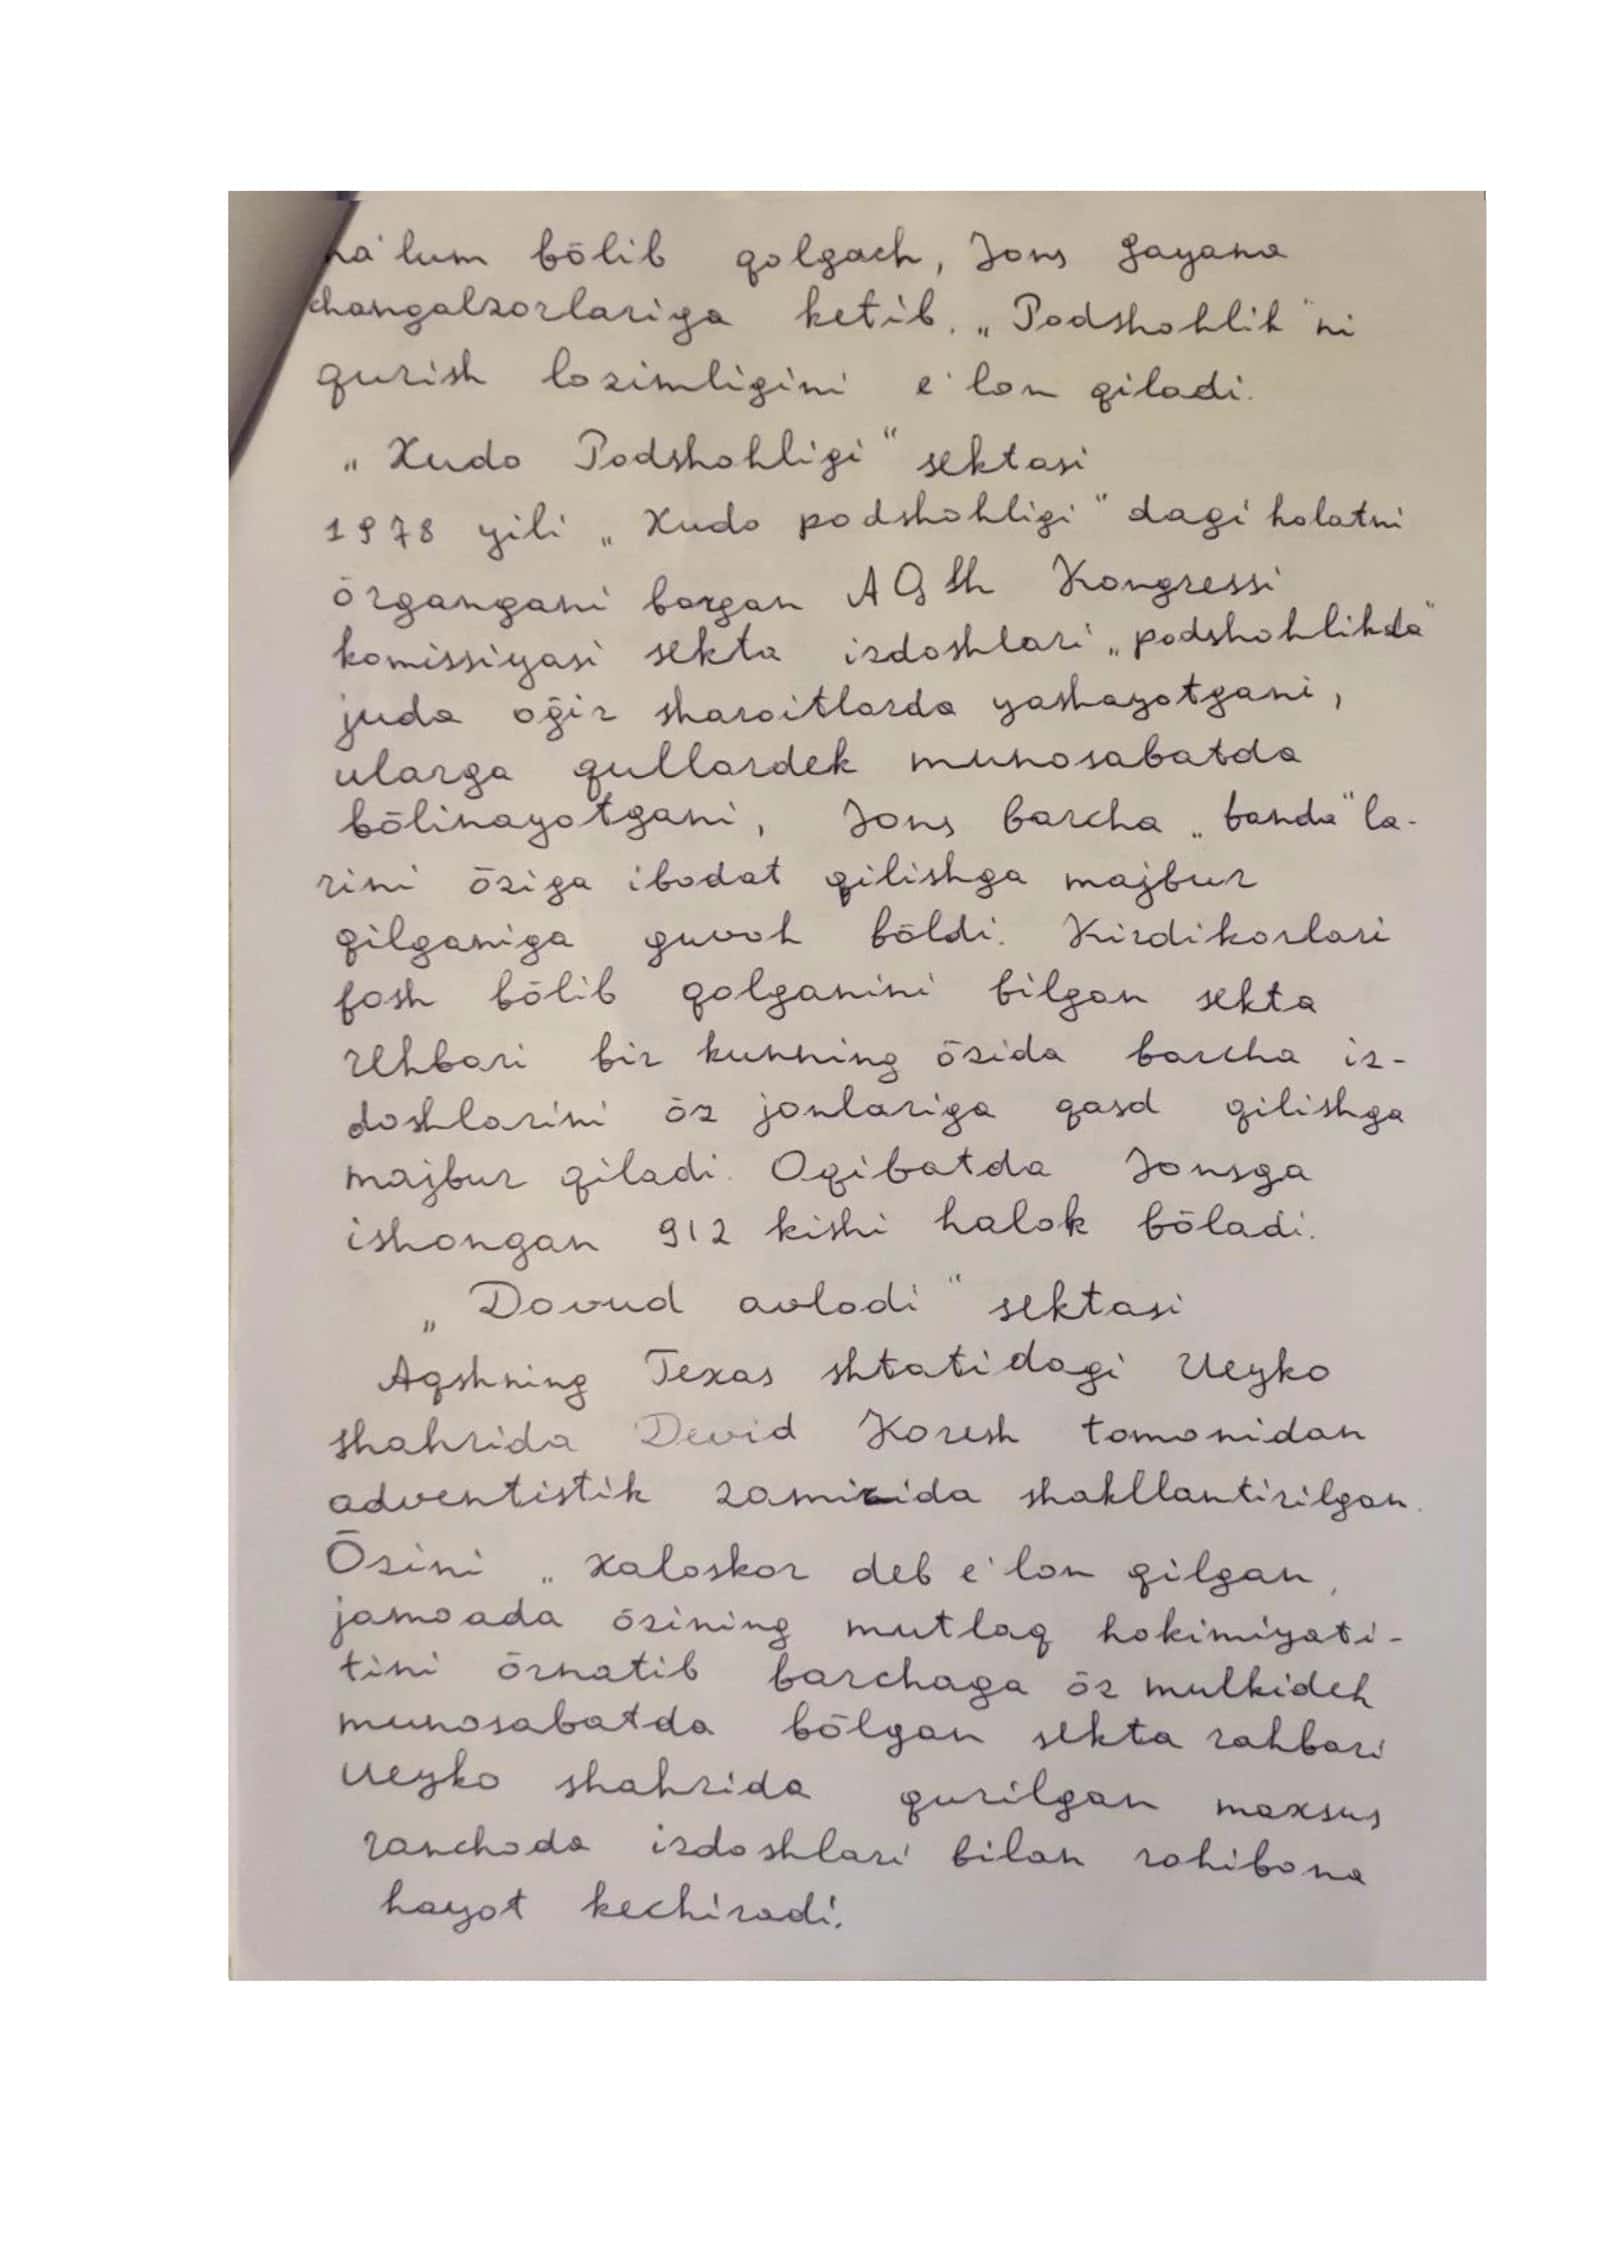 ma'lum bōlib qolgach, Jons Gayana
changalzorlariga ketib, „Podshohlik"ni
qurish lozimligini e'lon qiladi.
„Xudo Podshohligi" sektasi
1978 yili „Xudo podshohligi" dagi holatni
ōrgangani borgan AQSh Kongressi
komissiyasi sekta izdoshlari „podshohlikda"
juda oğir sharoitlarda yashayotgani,
ularga qullardek munosabatda
bōlinayotgani, Jons barcha „banda"la-
rini ōziga ibodat qilishga majbur
qilganiga guvoh bōldi. Kirdikorlari
fosh bōlib qolganini bilgan sekta
rehbari bir kunning ōzida barcha iz-
doshlarini ōz jonlariga qasd qilishga
majbur qiladi. Oqibatda Jonsga
ishongan 912 kishi halok bōladi.
„Dovud avlodi" sektasi
Aqshning Texas shtatidagi Ueyko
shahrida Devid Koresh tomonidan
adventistik zamirida shakllantirilgan.
Ōzini „xaloskor deb e'lon qilgan,
jamoada ōzining mutlaq hokimiyati-
tini ōrnatib barchaga ōz mulkidek
munosabatda bōlgan sekta rahbari
Ueyko shahrida qurilgan maxsus
ranchoda izdoshlari bilan rohibona
hayot kechiradi.